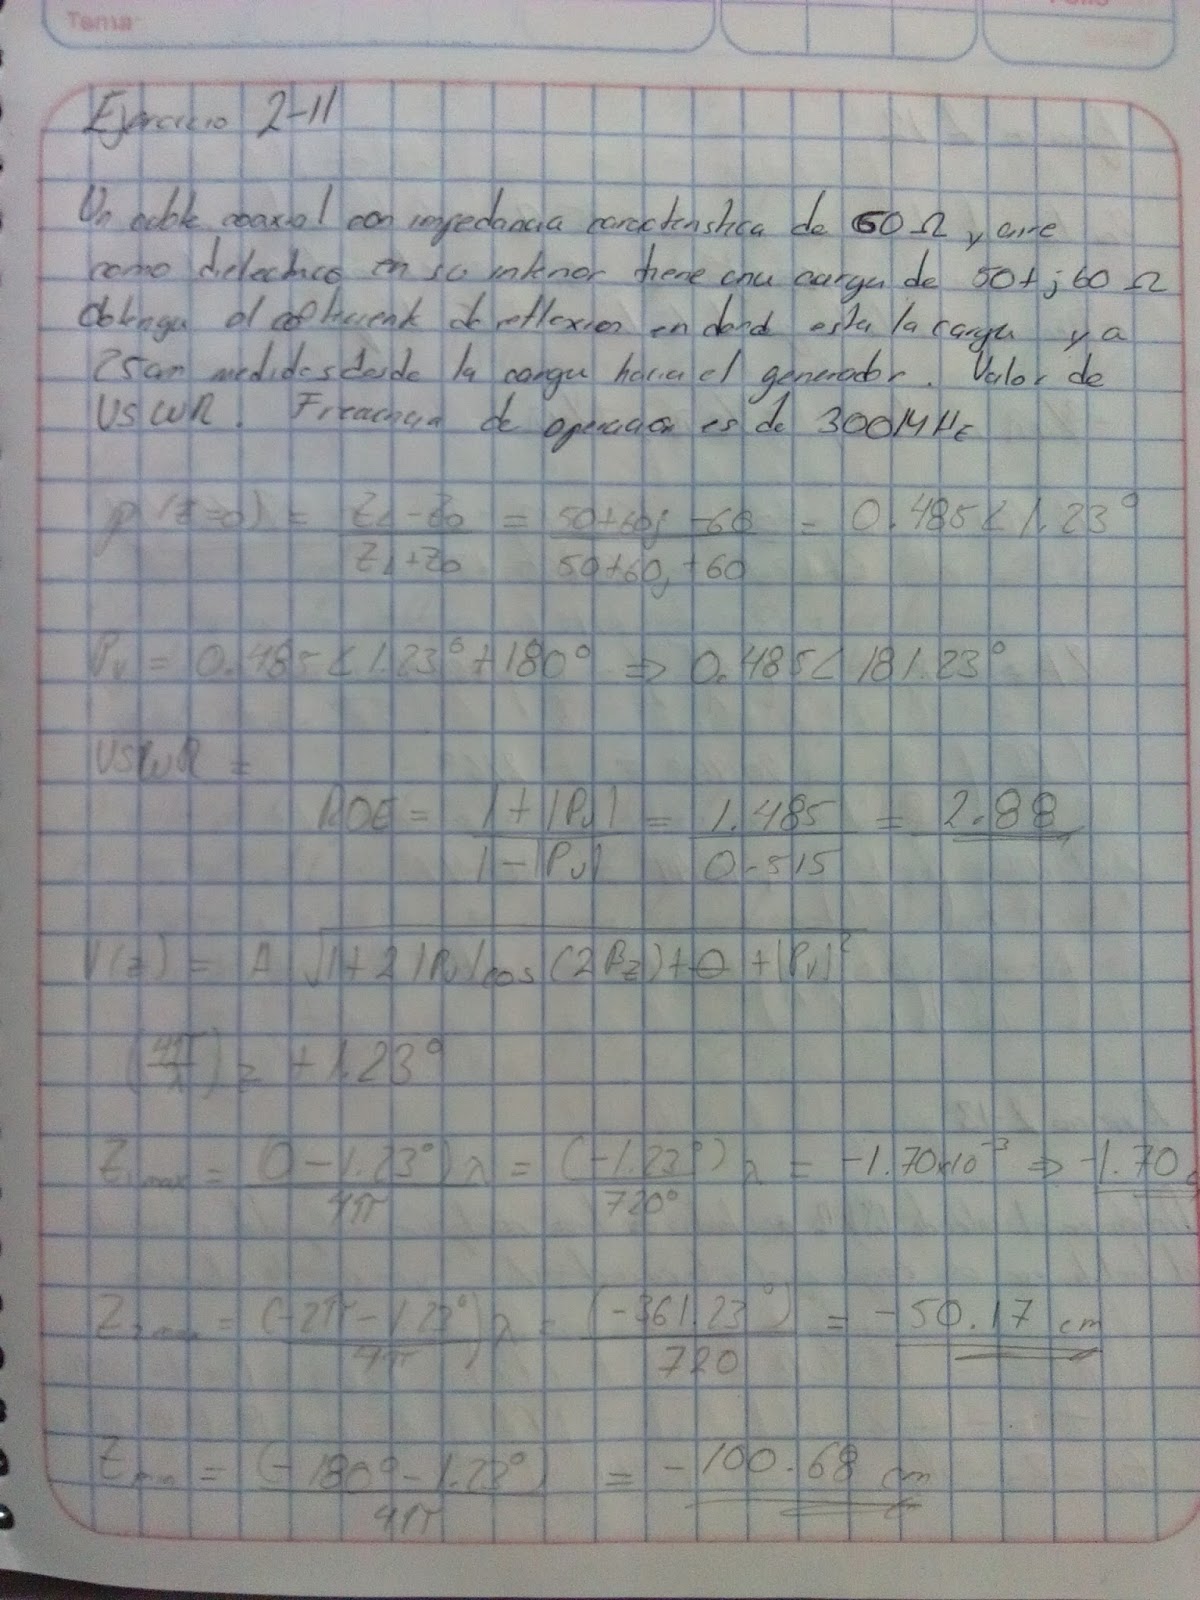 Tema
Ejercicio 2-11
Un cable coaxial con impedancia caracteristica de 60 Ω y aire
como dielectrico en su interior tiene una carga de 50+j60 Ω
Obtenga el coeficiente de reflexion en dond esta la carga y a
25cm medidos desde la carga hacia el generador. Valor de
VSWR. Frecuencia de operacion es de 300MHz
ρ(z=0) = ZL-Z0 / ZL+Z0 = 50+60j-60 / 50+60j+60 = 0.485<1.23°
Pv = 0.485<1.23°+180° => 0.485<181.23°
VSWR =
ROE = 1+|Pv| / 1-|Pv| = 1.485 / 0.515 = 2.88
V(z) = A √1+2|Pv|cos(2βz)+θ+|Pv|²
(4π/λ)z+1.23°
Z1max = (0-1.23°)λ / 4π = (-1.23°)λ / 720° = -1.70x10⁻³ => -1.70
Z2 = (-2π-1.23°)λ / 4π = (-361.23°) / 720 = -50.17 cm
Zmin = (-180°-1.23°) / 4π = -100.68 cm